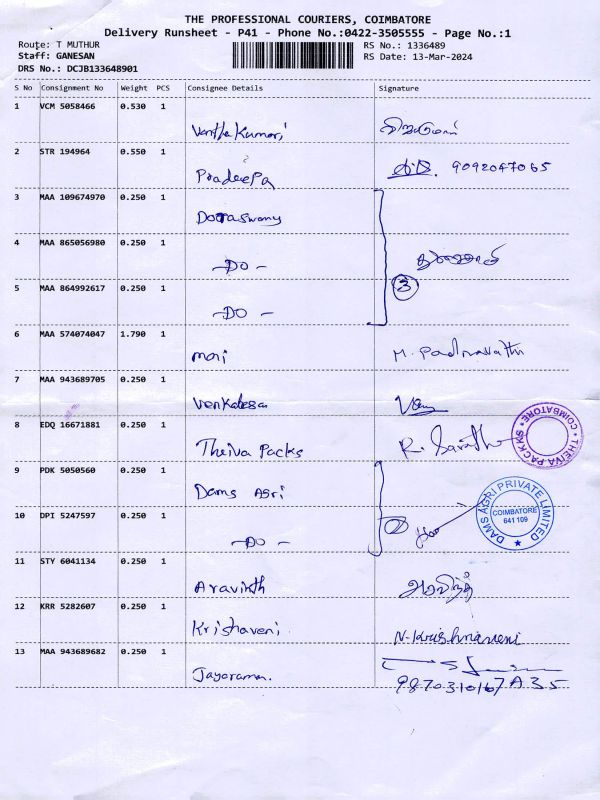 THE PROFESSIONAL COURIERS, COIMBATORE
Delivery Runsheet - P41 - Phone No.:0422-3505555 - Page No.:1
Route: T MUTHUR RS No.: 1336489
Staff: GANESAN RS Date: 13-Mar-2024
DRS No.: DCJB133648901
S No Consignment No Weight PCS Consignee Details Signature
1 VCM 5058466 0.530 1
2 STR 194964 0.550 1
PradeePa 9092047065
3 MAA 109674970 0.250 1
Doraswamy
4 MAA 865056980 0.250 1
-DO-
5 MAA 864992617 0.250 1
3
-DO-
6 MAA 574074047 1.790 1
mari M. Padmavathi
7 MAA 943689705 0.250 1
Venkatesa
8 EDQ 16671881 0.250 1
Theiva Packs
THEIVA PACKKS * COIMBATORE *
9 PDK 5050560 0.250 1
Dams Agri
10 DPI 5247597 0.250 1
2
-DO-
DAMS AGRI PRIVATE LIMITED
COIMBATORE
641 109
11 STY 6041134 0.250 1
Aravinth அரவிந்த்
12 KRR 5282607 0.250 1
Krishaveni N-Krishnaveni
13 MAA 943689682 0.250 1
Jayarama.